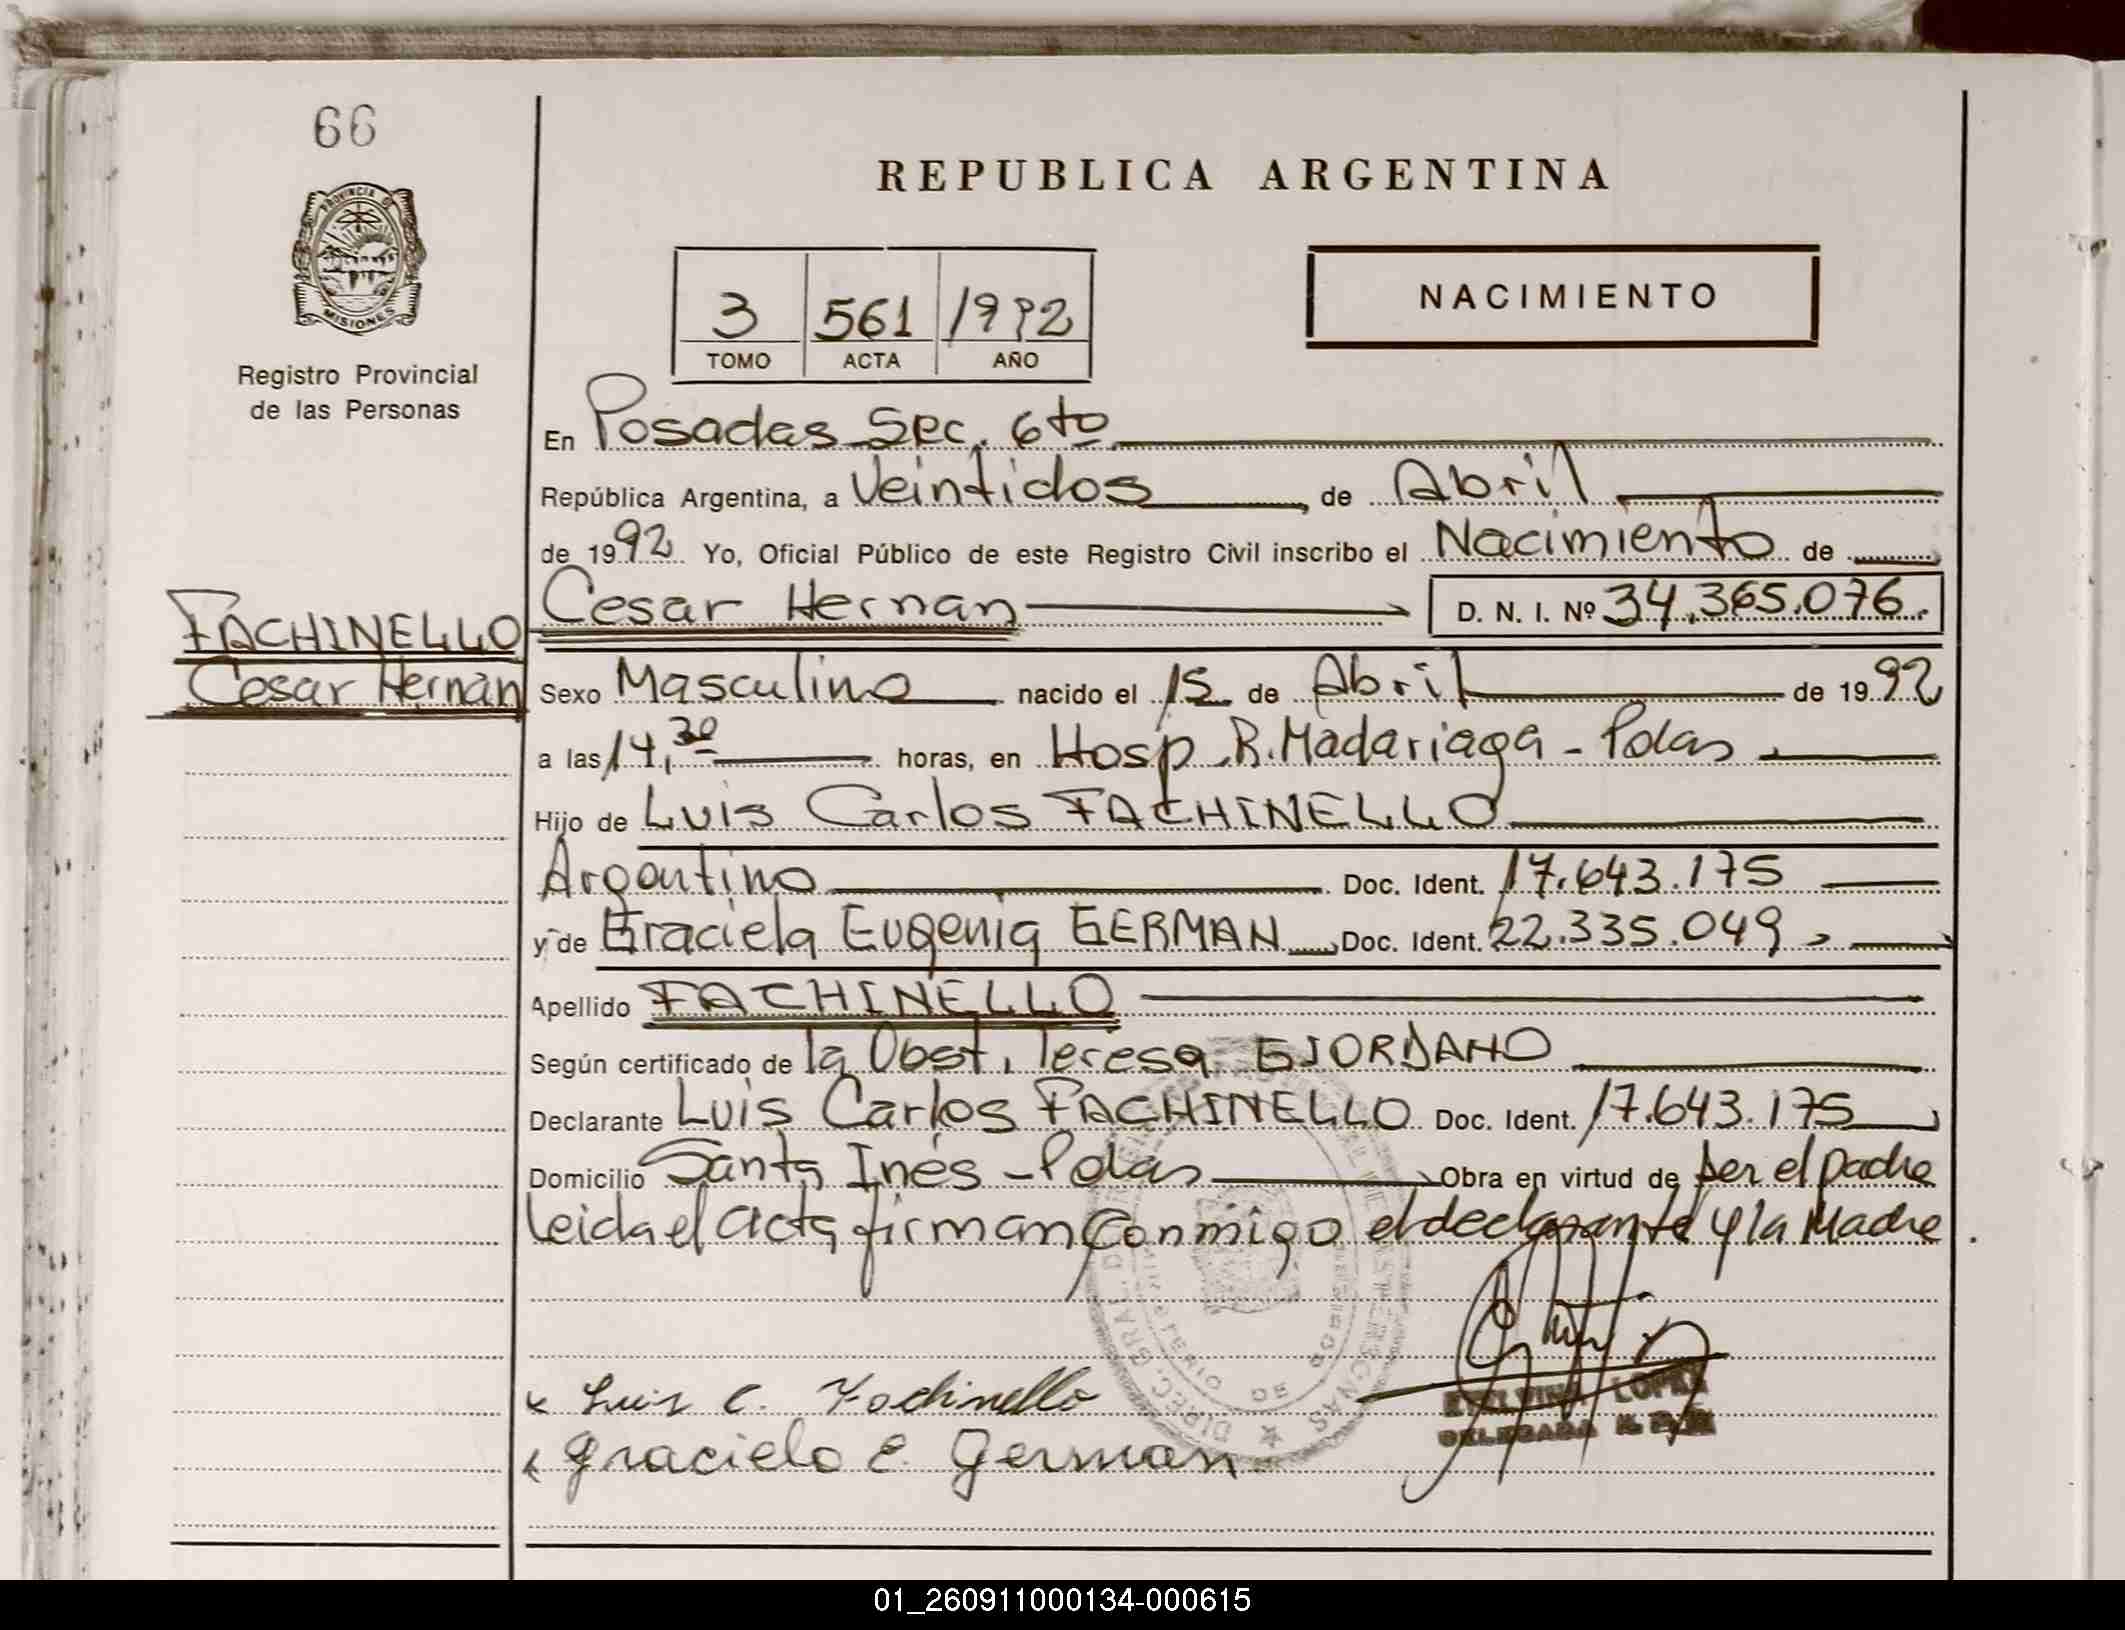 66
REPUBLICA ARGENTINA
PROVINCIA D
MISIONES
Registro Provincial
de las Personas
3 561 1992
TOMO ACTA AÑO
NACIMIENTO
En Posadas Sec. 6to
República Argentina, a Veintidos de Abril
de 1992 Yo, Oficial Público de este Registro Civil inscribo el Nacimiento de
FACHINELLO
Cesar Hernán
Cesar Hernan D. N. I. Nº 34.365.076.
Sexo Masculino nacido el 15 de Abril de 1992
a las 14,30 horas, en Hosp. R. Madariaga - Pdas
Hijo de Luis Carlos FACHINELLO
Argentino Doc. Ident. 17.643.175
y de Graciela Eugenia GERMAN Doc. Ident. 22.335.049
Apellido FACHINELLO
Según certificado de la Obst. Teresa GIORDANO
Declarante Luis Carlos FACHINELLO Doc. Ident. 17.643.175
Domicilio Santa Inés - Pdas Obra en virtud de ser el padre
leida el acta firman conmigo el declarante y la Madre.
Luis C. Fachinello
Graciela E. German
LOPEZ
DELEGADA
01_260911000134-000615